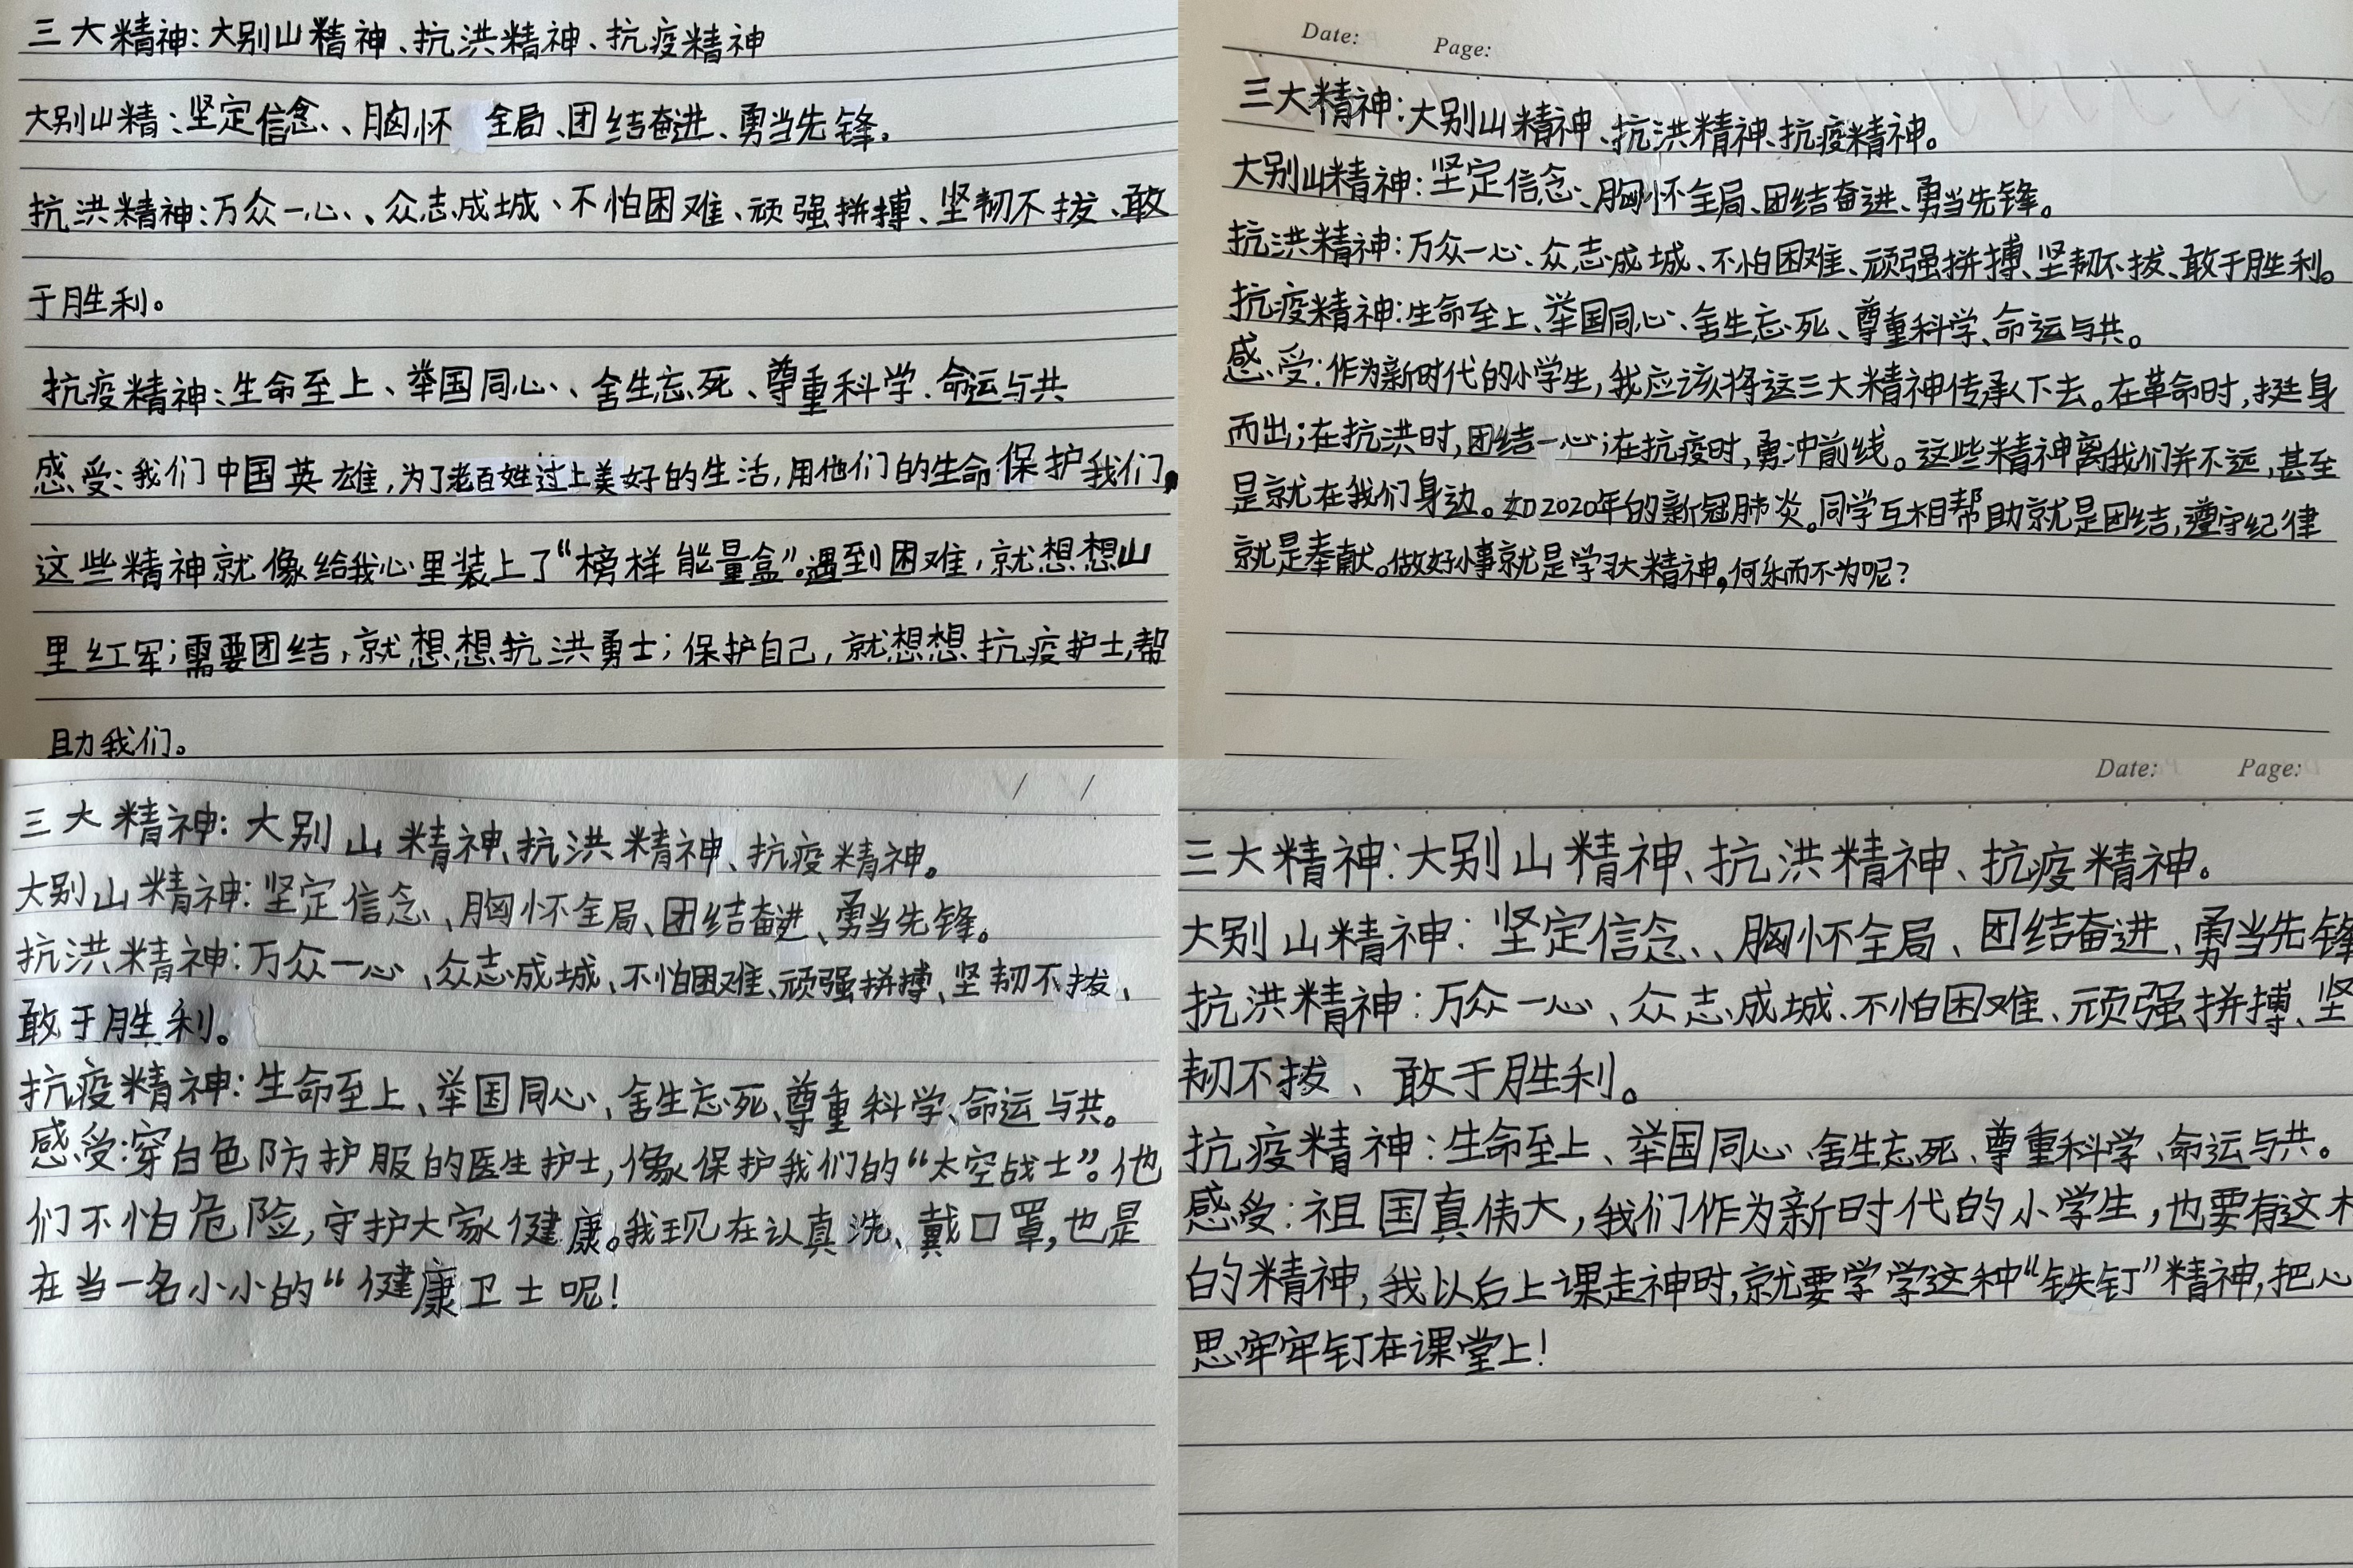 三大精神:大别山精神、抗洪精神、抗疫精神
大别山精:坚定信念、、胸怀 全局、团结奋进、勇当先锋。
抗洪精神:万众一心、、众志成城、不怕困难、顽强拼搏、坚韧不拔、敢
于胜利。
抗疫精神:生命至上、举国同心、、舍生忘死、尊重科学、命运与共
感受:我们中国英雄,为了老百姓过上美好的生活,用他们的生命保护我们。
这些精神就像给我心里装上了“榜样能量盒”。遇到困难,就想想山
里红军;需要团结,就想想抗洪勇士;保护自己,就想想抗疫护士,帮
助我们。
Date: Page:
三大精神:大别山精神、抗洪精神、抗疫精神。
大别山精神:坚定信念、胸怀全局、团结奋进、勇当先锋。
抗洪精神:万众一心、众志成城、不怕困难、顽强拼搏、坚韧不拔、敢于胜利。
抗疫精神:生命至上、举国同心、舍生忘死、尊重科学、命运与共。
感受:作为新时代的小学生,我应该将这三大精神传承下去。在革命时,挺身
而出;在抗洪时,团结一心;在抗疫时,勇冲前线。这些精神离我们并不远,甚至
是就在我们身边。如2020年的新冠肺炎。同学互相帮助就是团结,遵守纪律
就是奉献。做好小事就是学习大精神,何乐而不为呢?
三大精神:大别山精神、抗洪精神、抗疫精神。
大别山精神:坚定信念、、胸怀全局、团结奋进、勇当先锋。
抗洪精神:万众一心、众志成城、不怕困难、顽强拼搏、坚韧不拔、
敢于胜利。
抗疫精神:生命至上、举国同心、舍生忘死、尊重科学、命运与共。
感受:穿白色防护服的医生护士,像保护我们的“太空战士”。他
们不怕危险,守护大家健康。我现在认真洗、戴口罩,也是
在当一名小小的“健康卫士呢!
Date: Page:
三大精神:大别山精神、抗洪精神、抗疫精神。
大别山精神:坚定信念、、胸怀全局、团结奋进、勇当先锋
抗洪精神:万众一心、众志成城、不怕困难、顽强拼搏、坚
韧不拔、敢于胜利。
抗疫精神:生命至上、举国同心、舍生忘死、尊重科学、命运与共。
感受:祖国真伟大,我们作为新时代的小学生,也要有这
的精神,我以后上课走神时,就要学学这种“铁钉”精神,把心
思牢牢钉在课堂上!